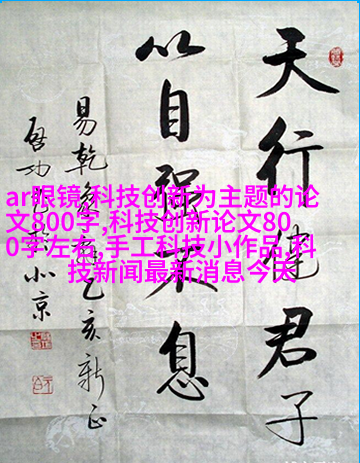 天行健君子
以自强不息
易乾象乙亥新正
啟功 北京
ar眼镜,科技创新为主题的论
文800字,科技创新论文80
0字左右,手工科技小作品,科
技新闻最新消息今天